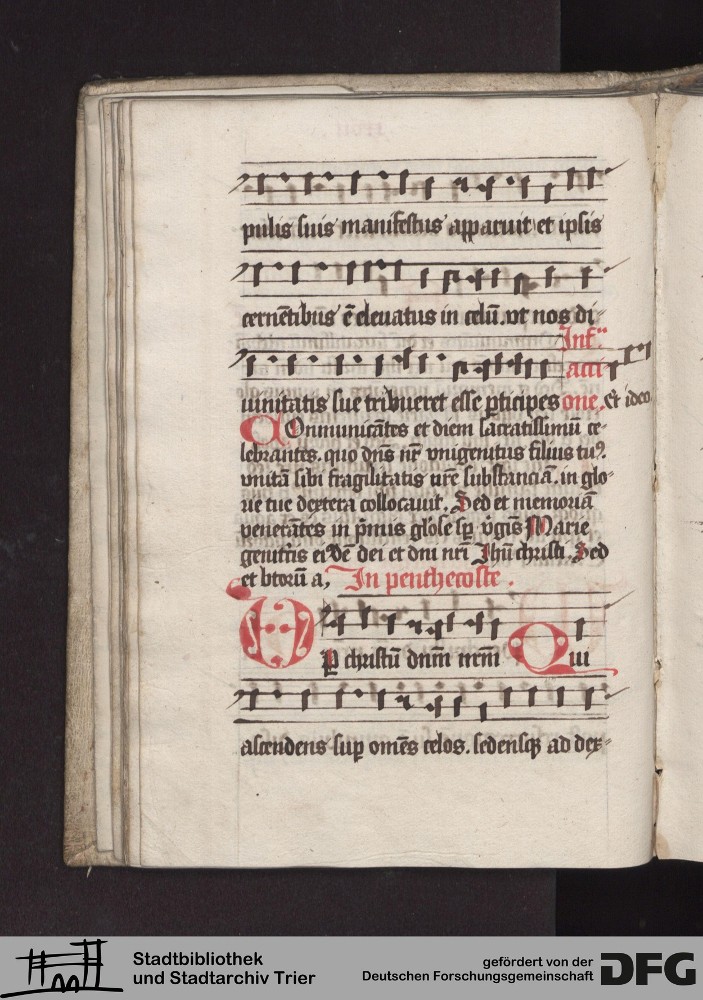 pulis suis manifestus apparuit et ipsis
cernētibus ē eleuatus in celū. vt nos di-
Inf
acti
uinitatis sue tribueret esse pticipes one. Et ideo
Conmunicātes et diem sacratissimū ce-
lebrantes. quo dns nr vnigenitus filius tuꝰ.
vnitā sibi fragilitatis nre substanciā. in glo-
rie tue dextera collocauit. Sed et memoriā
venerātes in pmis glose sp vgis Marie
genitris eiꝰdē dei et dni nri Jhu christi. Sed
et btorū a, In penthecoste.
V
P christū dnm nrm Qui
ascendens sup omēs celos. sedensqꝫ ad dex-
Stadtbibliothek
und Stadtarchiv Trier
gefördert von der
Deutschen Forschungsgemeinschaft
DFG